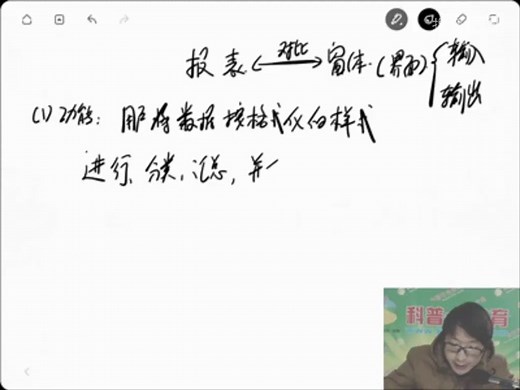 报表 ←对比→ 窗体 (界面) { 输入 输出
(1) 功能: 用于将数据按格式化的样式
进行, 分类, 汇总, 并
科普 育